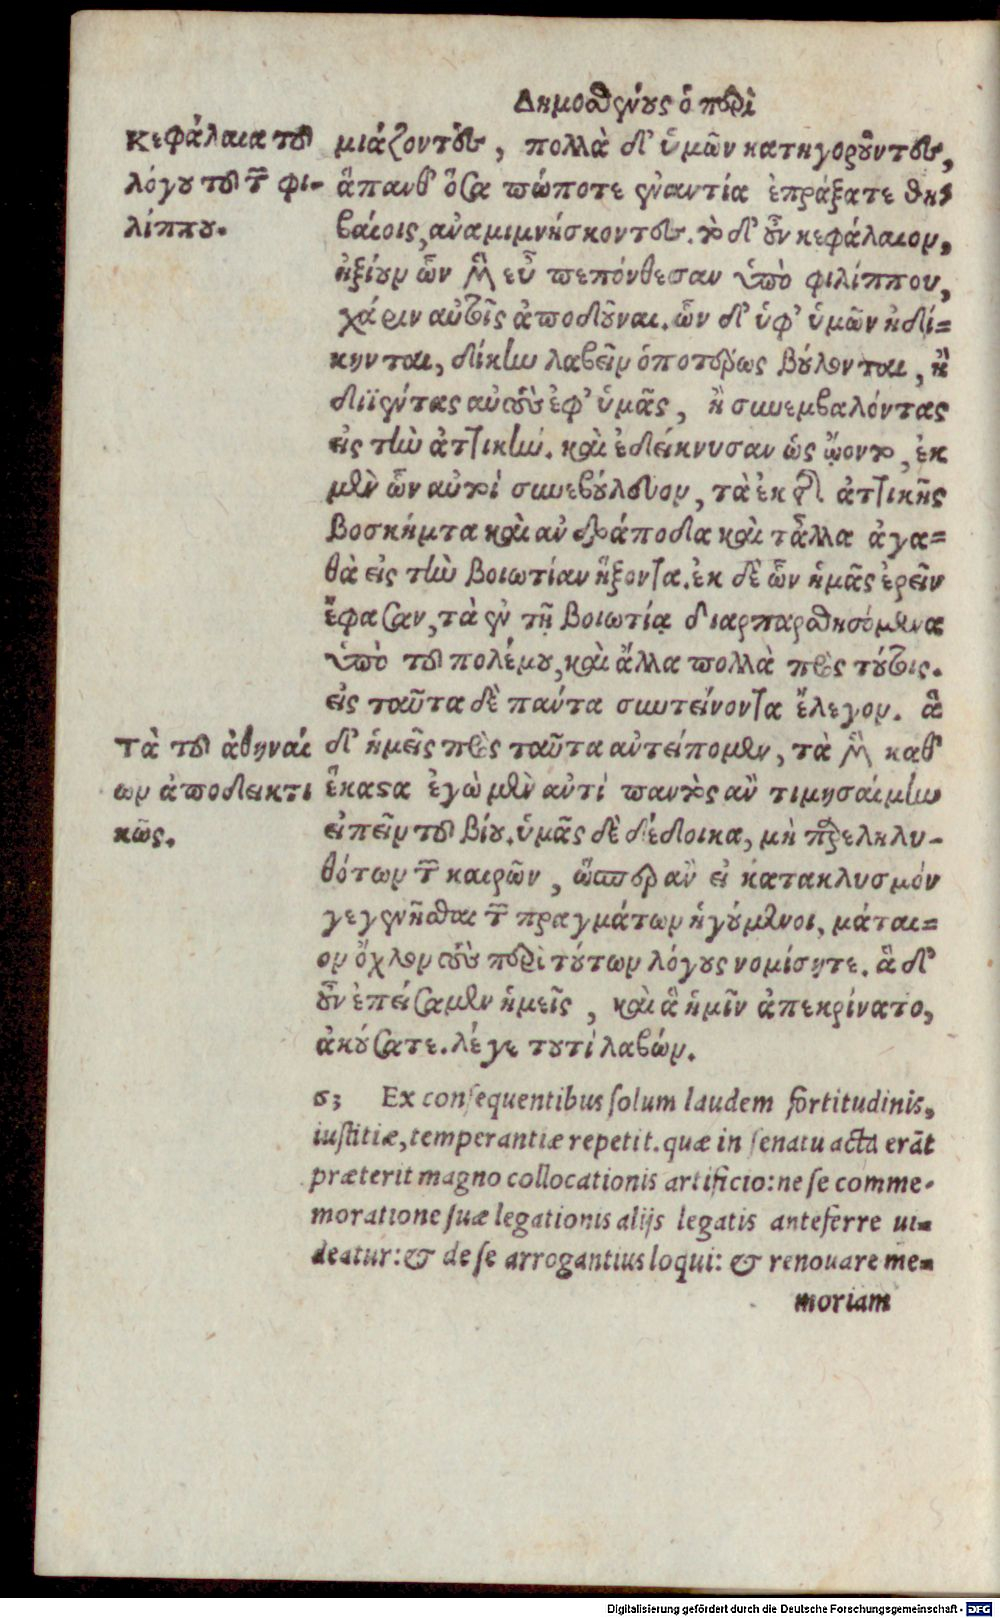 Δημοσθένους ὁ περὶ
Κεφάλαια τοῦ
λόγου τοῦ τῶν φι-
λίππου.
μιάζοντες, πολλὰ δ' ὑμῶν κατηγοροῦντες,
ἅπανθ' ὅσα πώποτε ἐναντία ἐπράξατε θη-
βαίοις, ἀναμιμνήσκοντες. τὸ δ' οὖν κεφάλαιον,
ἠξίουν ὧν μὲν εὖ πεπόνθεσαν ὑπὸ φιλίππου,
χάριν αὐτοῖς ἀποδοῦναι. ὧν δ' ὑφ' ὑμῶν ἠδί=
κηνται, δίκην λαβεῖν ὁποτέρως βούλονται, ἢ
διϊέντας αὐτοὺς ἐφ' ὑμᾶς, ἢ συνεμβαλόντας
εἰς τὴν ἀττικήν. καὶ ἐδείκνυσαν ὡς ᾤοντο, ἐκ
μὲν ὧν αὐτοὶ συνεβούλευον, τὰ ἐκ τῆς ἀττικῆς
βοσκήματα καὶ ἀνδράποδα καὶ τἆλλα ἀγα=
θὰ εἰς τὴν βοιωτίαν ἥξοντα. ἐκ δὲ ὧν ἡμᾶς ἐρεῖν
ἔφασαν, τὰ ἐν τῇ βοιωτίᾳ διαρπασθησόμενα
ὑπὸ τοῦ πολέμου, καὶ ἄλλα πολλὰ πρὸς τούτοις.
εἰς ταῦτα δὲ πάντα συντείνοντα ἔλεγον. ἃ
Τὰ τοῦ ἀθηναί
ων ἀποδεικτι
κῶς.
δ' ἡμεῖς πρὸς ταῦτα ἀντείπομεν, τὰ μὲν καθ'
ἕκαστα ἐγὼ μὲν ἀντὶ παντὸς ἂν τιμησαίμην
εἰπεῖν τοῦ βίου. ὑμᾶς δὲ δέδοικα, μὴ παρεληλυ-
θότων τῶν καιρῶν, ὥσπερ ἂν εἰ κατακλυσμόν
γεγενῆσθαι τῶν πραγμάτων ἡγούμενοι, μάται=
ον ὄχλον τοὺς περὶ τούτων λόγους νομίσητε. ἃ δ'
οὖν ἐπείσαμεν ἡμεῖς, καὶ ἃ ἡμῖν ἀπεκρίνατο,
ἀκούσατε. λέγε τουτὶ λαβών.
Ex consequentibus solum laudem fortitudinis,
iustitiæ, temperantiæ repetit. quæ in senatu acta erāt
præterit magno collocationis artificio: ne se comme-
moratione suæ legationis alijs legatis anteferre ui=
deatur: & de se arrogantius loqui: & renouare me=
moriam
Digitalisierung gefördert durch die Deutsche Forschungsgemeinschaft - DFG